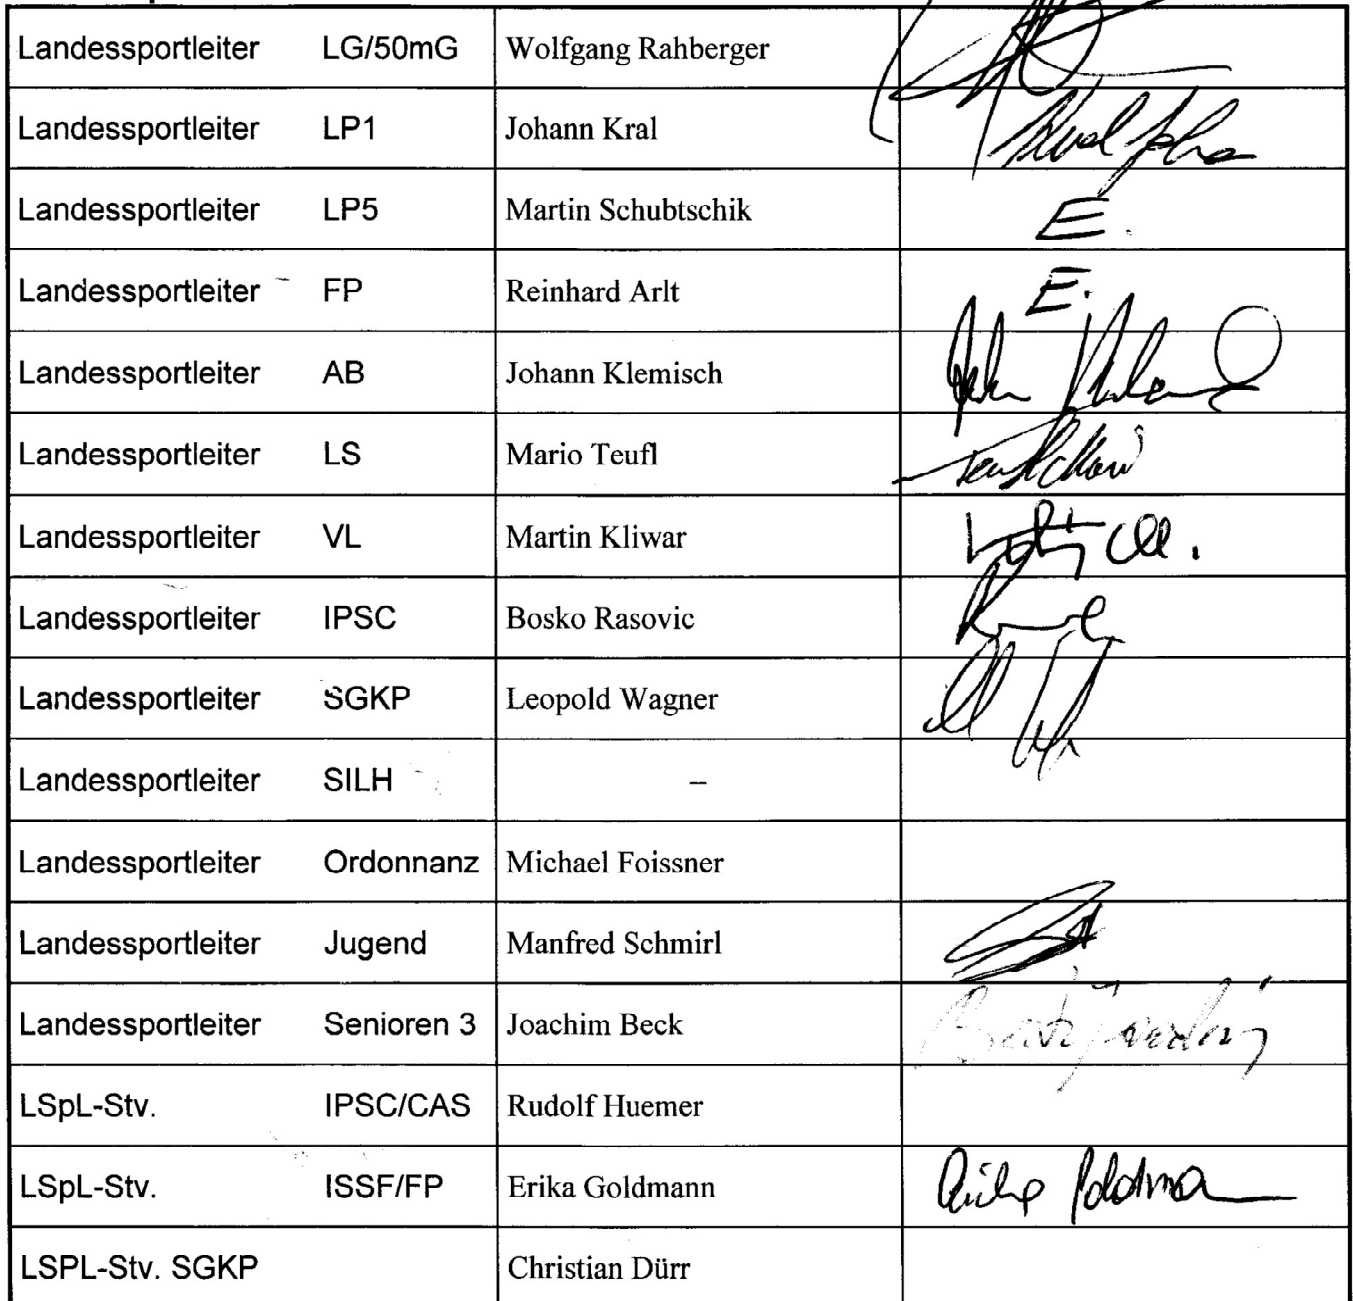 Landessportleiter LG/50mG Wolfgang Rahberger
Landessportleiter LP1 Johann Kral
Landessportleiter LP5 Martin Schubtschik E.
Landessportleiter FP Reinhard Arlt E.
Landessportleiter AB Johann Klemisch
Landessportleiter LS Mario Teufl
Landessportleiter VL Martin Kliwar
Landessportleiter IPSC Bosko Rasovic
Landessportleiter SGKP Leopold Wagner
Landessportleiter SILH –
Landessportleiter Ordonnanz Michael Foissner
Landessportleiter Jugend Manfred Schmirl
Landessportleiter Senioren 3 Joachim Beck
LSpL-Stv. IPSC/CAS Rudolf Huemer
LSpL-Stv. ISSF/FP Erika Goldmann
LSPL-Stv. SGKP Christian Dürr